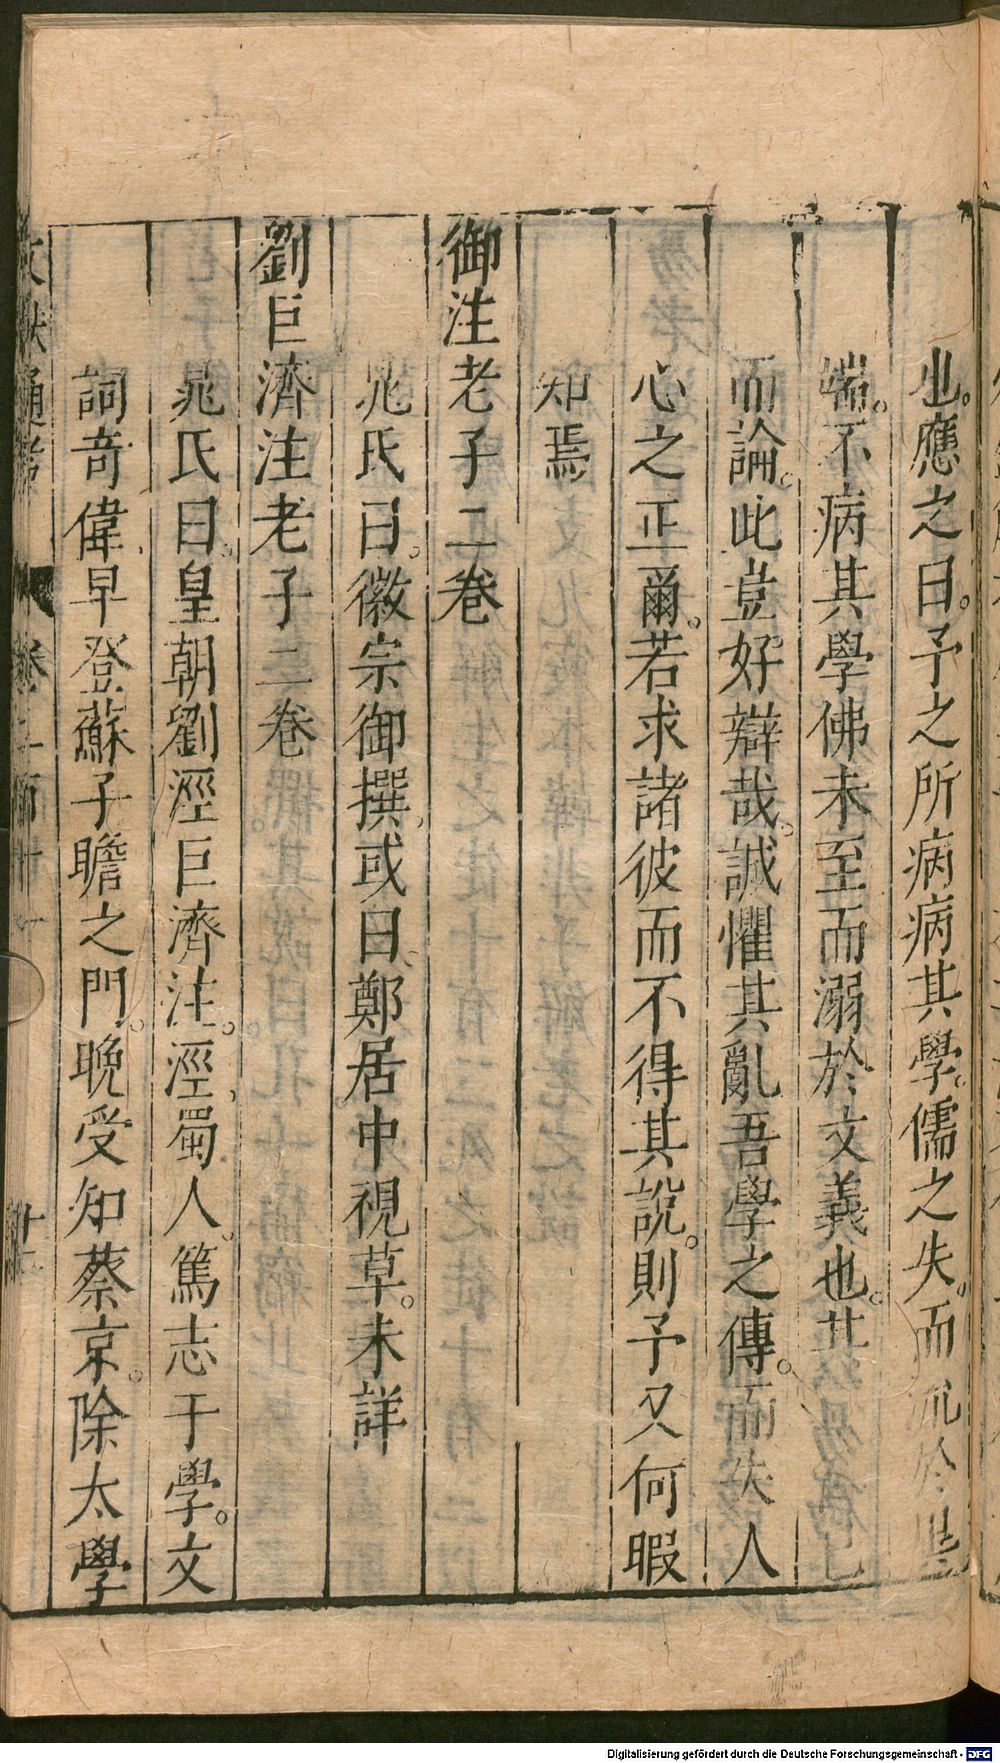 也應之曰予之所病病其學儒之失而流於異
端不病其學佛未至而溺於文義也其
而論此豈好辯哉誠懼其亂吾學之傳而失人
心之正爾若求諸彼而不得其說則予又何暇
知焉
御注老子二卷
晁氏曰徽宗御撰或曰鄭居中視草未詳
劉巨濟注老子二卷
晁氏曰皇朝劉涇巨濟注涇蜀人篤志于學文
詞奇偉早登蘇子瞻之門晚受知蔡京除太學
文獻通考 卷二百十一 十
Digitalisierung gefördert durch die Deutsche Forschungsgemeinschaft - DFG